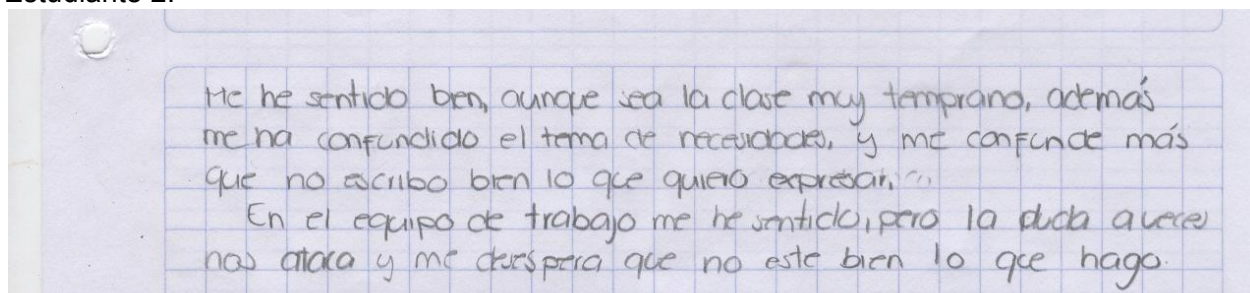 Estudiante 2:
Me he sentido bien, aunque sea la clase muy temprano, además
me ha confundido el tema de necesidades, y me confunde más
que no escribo bien lo que quiero expresar,
En el equipo de trabajo me he sentido, pero la duda a veces
nos ataca y me desespera que no este bien lo que hago.